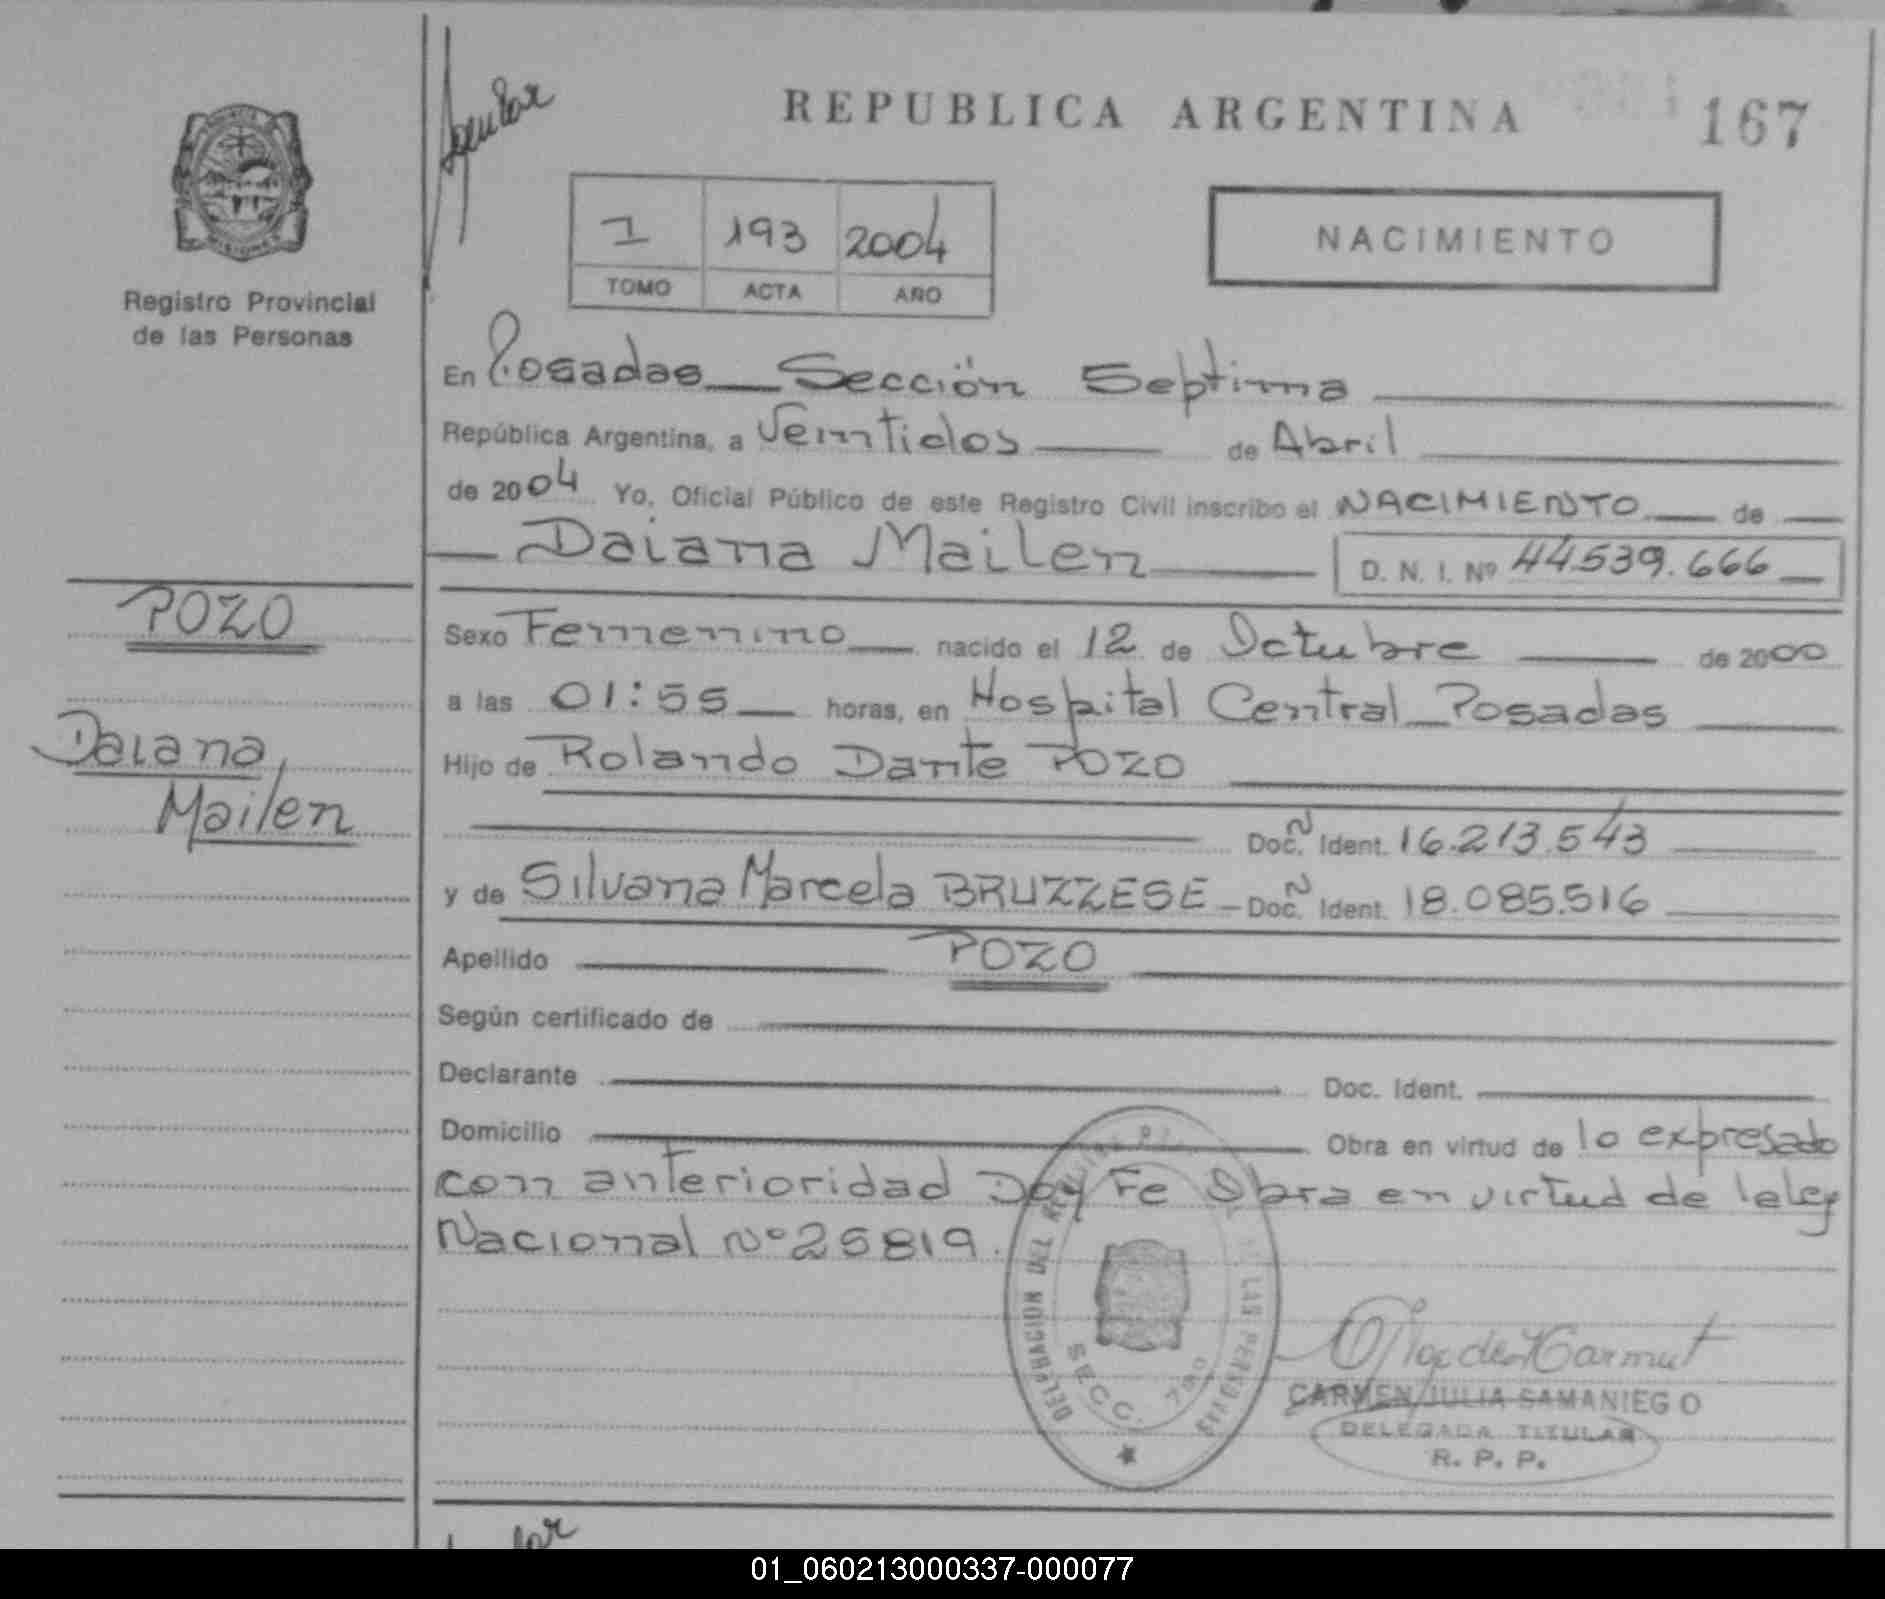 REPUBLICA ARGENTINA
167
Registro Provincial
de las Personas
I 193 2004
TOMO ACTA AÑO
NACIMIENTO
En Posadas Sección Septima
República Argentina, a Veintidos de Abril
de 2004 Yo, Oficial Público de este Registro Civil inscribo el NACIMIENTO de
Daiana Mailen D. N. I. Nº 44.539.666
POZO
Daiana
Mailen
Sexo Femenino nacido el 12 de Octubre de 2000
a las 01:55 horas, en Hospital Central Posadas
Hijo de Rolando Dante POZO
Doc. Ident. 16.213.543
y de Silvana Marcela BRUZZESE Doc. Ident. 18.085.516
Apellido POZO
Según certificado de
Declarante Doc. Ident.
Domicilio Obra en virtud de lo expresado
con anterioridad Doy Fe Obra en virtud de la ley
Nacional Nº 25819.
DELEGACION DEL LAS PERSONAS
SECC. 7
CARMEN JULIA SAMANIEGO
DELEGADA TITULAR
R. P. P.
01_060213000337-000077